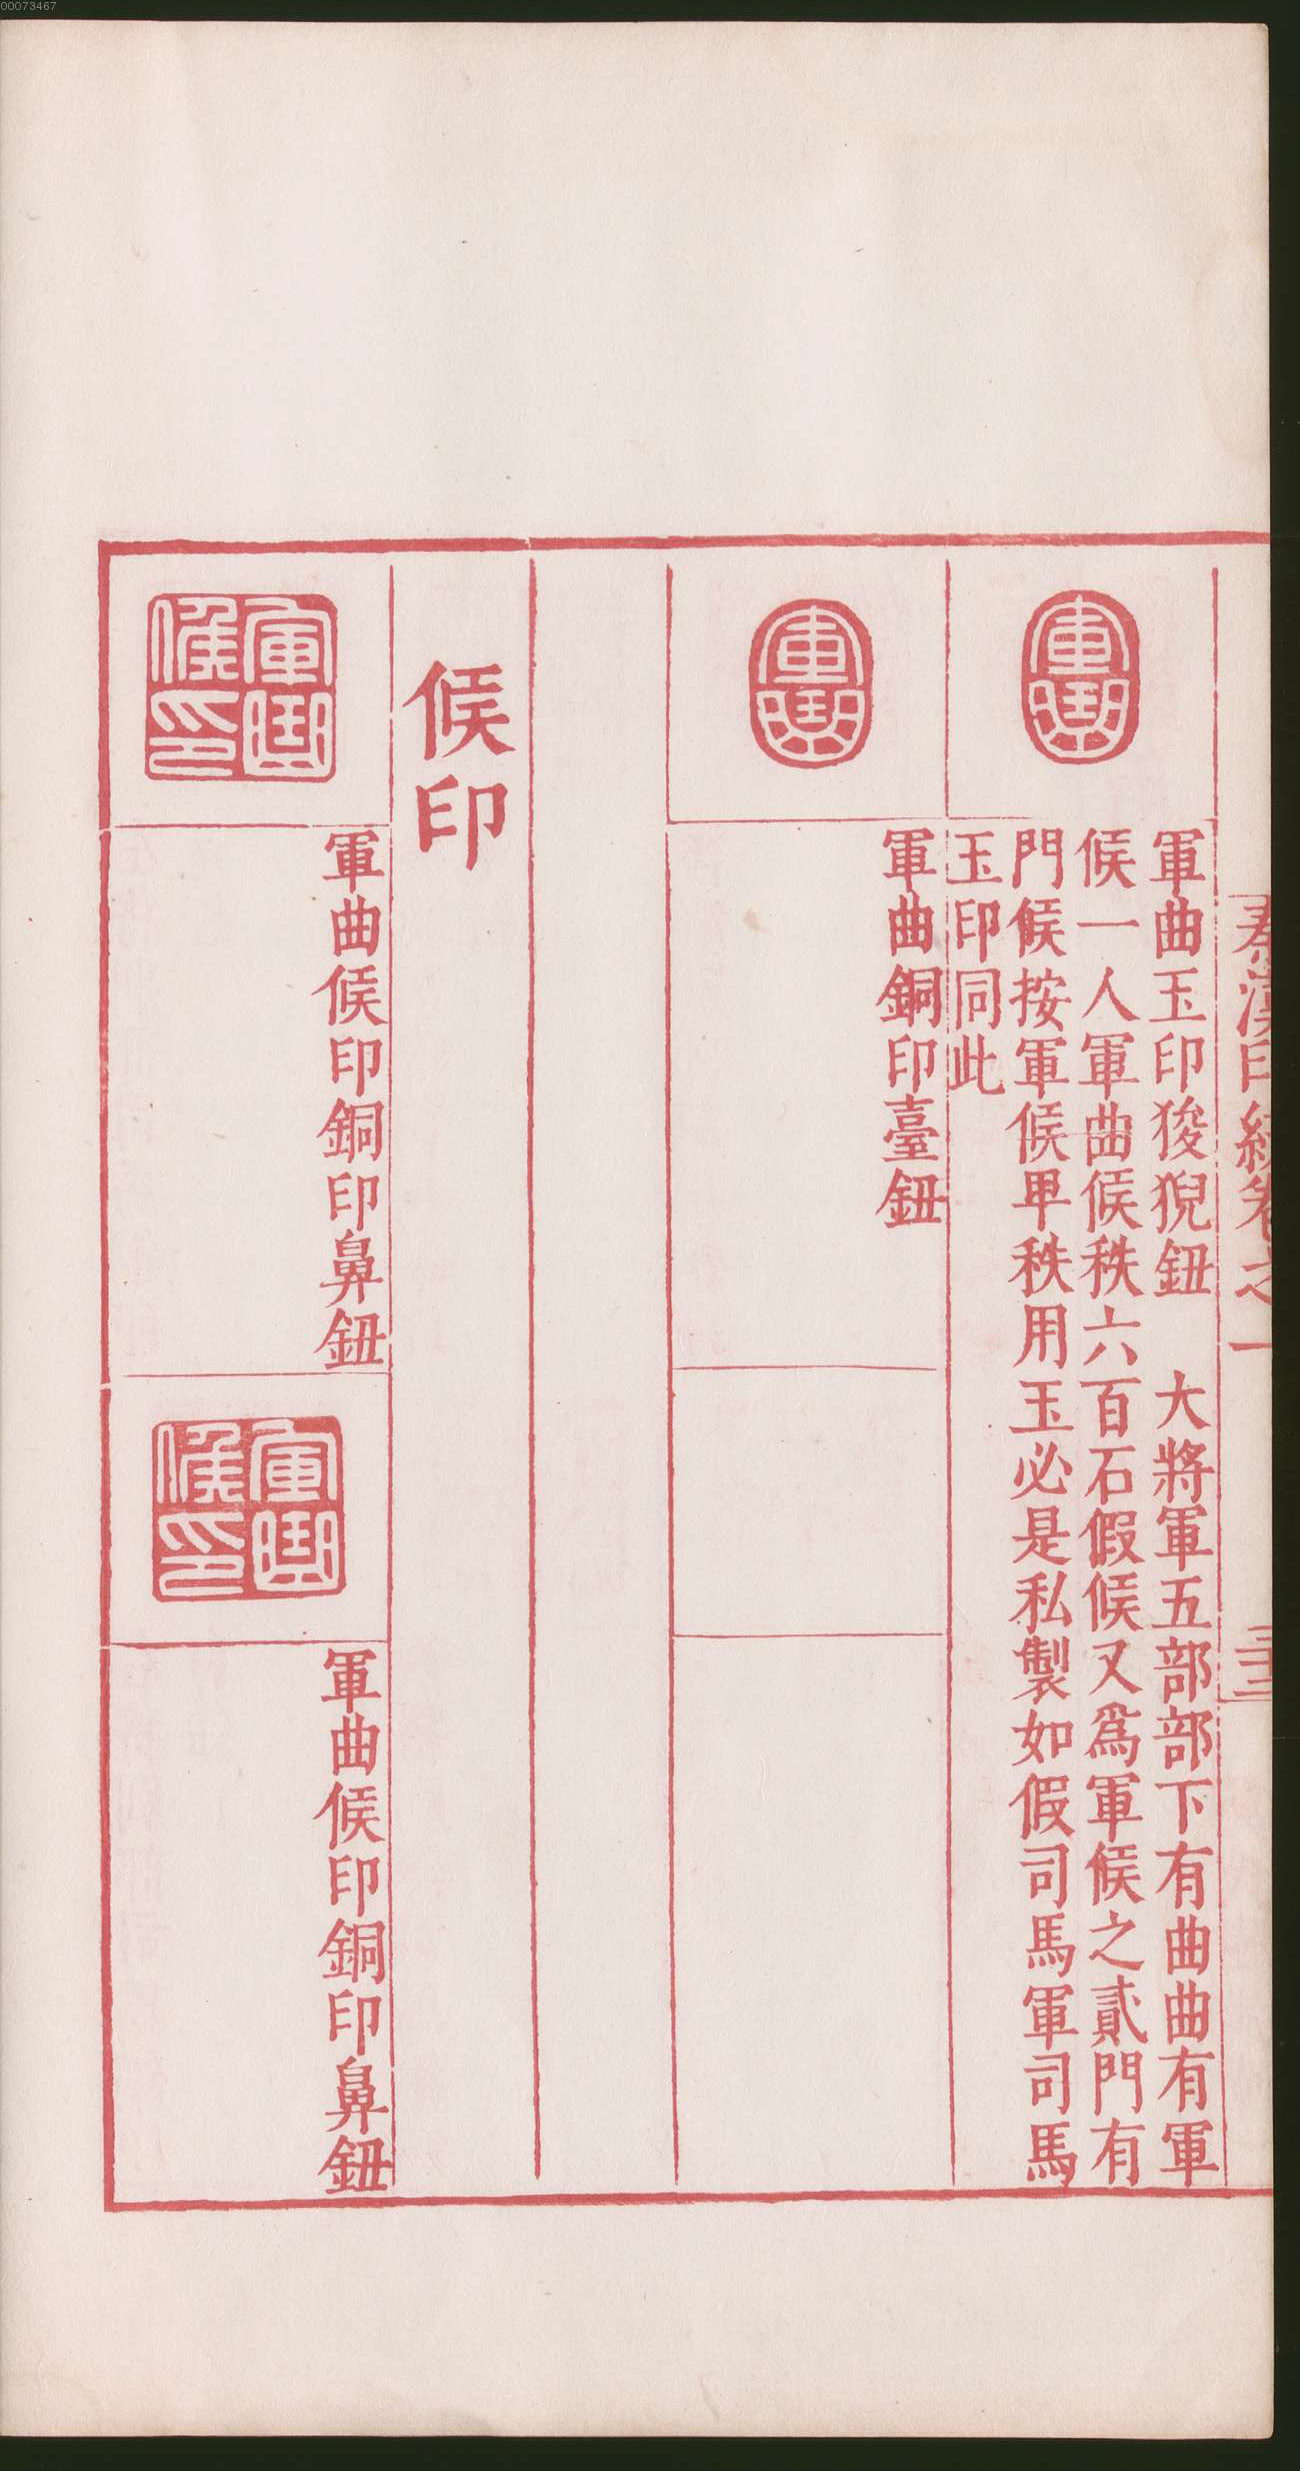 00073467
秦漢印統卷之一
三三
軍曲
軍曲玉印狻猊鈕　大將軍五部部下有曲曲有軍
候一人軍曲候秩六百石假候又爲軍候之貳門有
門候按軍候卑秩用玉必是私製如假司馬軍司馬
玉印同此
軍曲
軍曲銅印臺鈕
候印
軍曲
候印
軍曲候印銅印鼻鈕
軍曲
候印
軍曲候印銅印鼻鈕